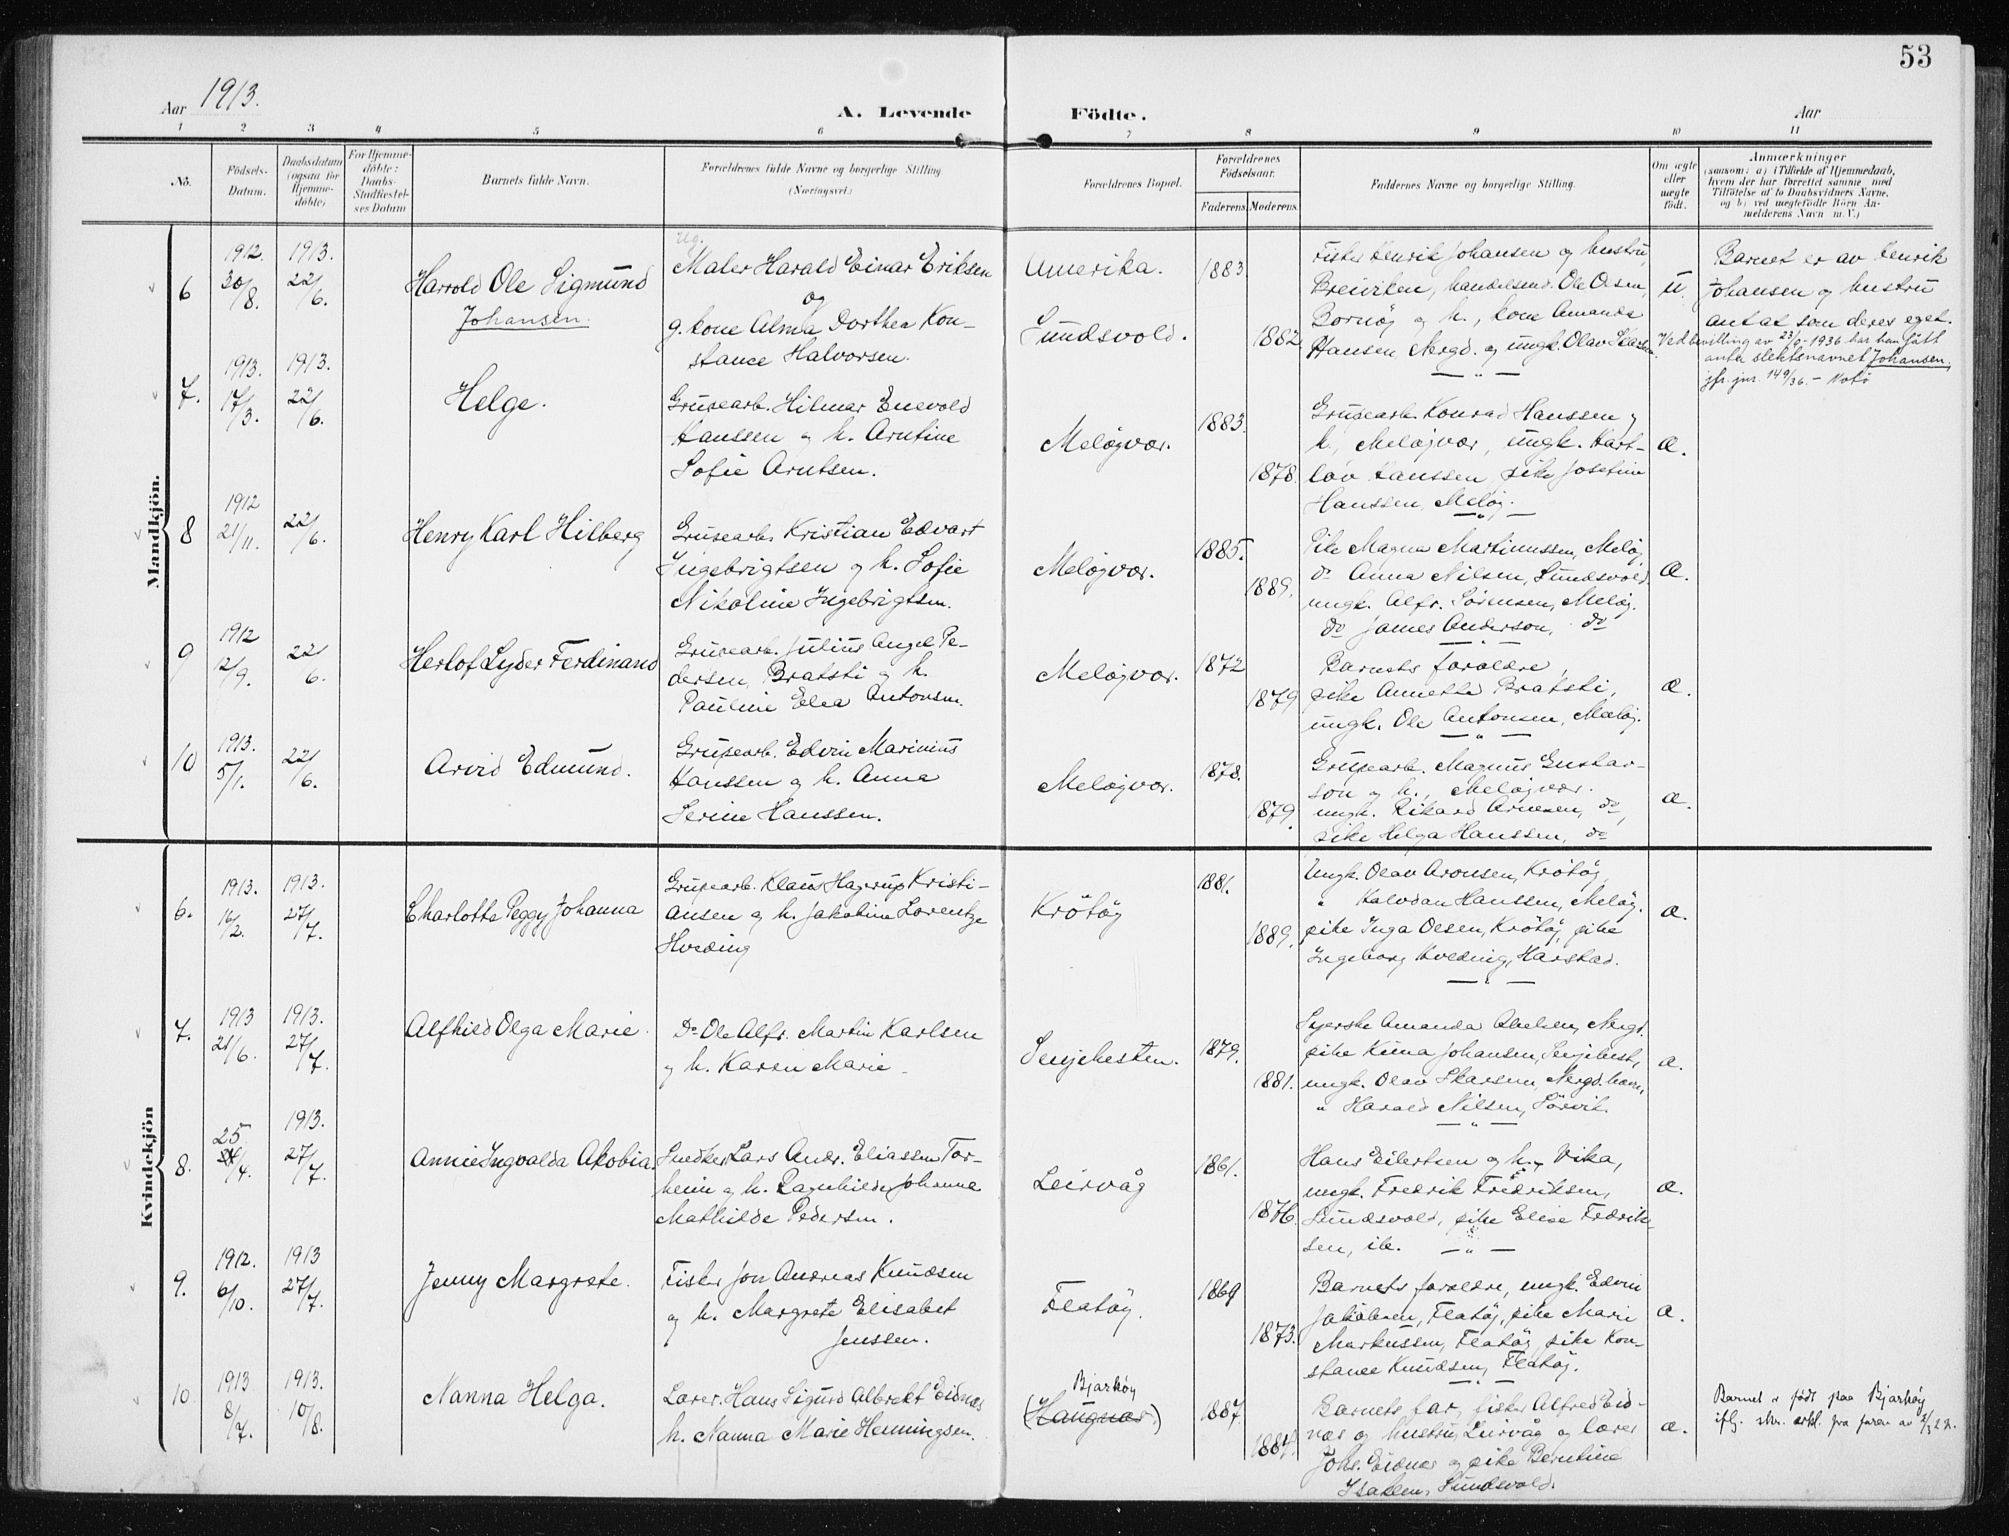 53
Aar 1913.
A. Levende Födte.
Aar
1 2 3 4 5 6 7 8 9 10 11
No.
Födsels-Datum.
Daabsdatum (ogsaa for Hjemme-döbte)
For Hjemme-döbte: Daabs-Stadfæstel-ses Datum
Barnets fulde Navn.
Forældrenes fulde Navne og borgerlige Stilling (Næringsvei.)
Forældrenes Bopæl.
Forældrenes Födselsaar.
Faderens. Moderens.
Faddernes Navne og borgerlige Stilling.
Om ægte eller uægte födt.
Anmærkninger
(saasom: a) i Tilfælde af Hjemmedaab,
hvem der har forrettet samme med
Tilföielse af to Daabsvidners Navne,
og b) ved uegtefödte Börn An-
melderens Navn m. V.)
Mandkjön.
6
1912. 30/8.
1913. 22/6.
Harrold Ole Sigmund
Johansen.
Ug.
Maler Harald Einar Eriksen
og
g. kone Alma Dorthea Kon-
stance Halvorsen.
Amerika.
Sundsvold.
1883.
1882
Fisker Henrik Johansen og hustru,
Breiviken, handelsend. Ole Olsen,
Bornøj og h., kone Amanda
Hansen Nergd. og ungk. Olav Skarsen.
U.
Barnet er av Henrik
Johansen og hustru
antat som deres eget.
Ved bevilling av 23/1-1936 har han fått
anta slektsnavnet Johansen,
jfr. jnr. 149/36. -
7.
1913. 17/3.
1913. 22/6.
Helge.
Grusearb. Hilmar Enevold
Hanssen og h. Arntine
Sofie Arntsen.
Meløyvær.
1883.
1878.
Grusearb. Konrad Hanssen og
h., Meløjvær, ungk. Hart-
lov Hanssen, pike Josefine
Hanssen, Meløj.
Æ.
8
1912 21/11.
22/6.
Henry Karl Hilberg
Grusearb. Kristian Edvart
Ingebrigtsen og h. Sofie
Nikoline Ingebrigtsen.
Meløjvær.
1885.
1889.
Pike Magna Martinussen, Meløj
do Anna Nilsen, Sundsvold,
ungk. Alfr. Sørensen, Meløj.
do James Anderson, do
Æ.
9
1912 12/9.
22/6.
Herlof Lyder Ferdinand
Grusearb. Julius Angel Pe-
dersen, Bratsti og h.
Pauline Elea Antonsen.
Meløjvær.
1872
1879
Barnets forældre,
pike Annette Bratsti,
ungk. Ole Antonsen, Meløj.
Æ.
10
1913. 5/1.
22/6.
Arvid Edmund.
Grusearb. Edvin Marinius
Hanssen og h. Anna
Serine Hanssen.
Meløgvær.
1878.
1879.
Grusearb. Magnus Gustav-
son og h., Meløjvær.
ungk. Rikard Arnesen, do,
pike Helga Hanssen, do
Æ.
Kvindekjön
6.
1913. 16/2.
1913. 27/7.
Charlotte Peggy Johanna
Grusearb. Klaus Hagerup Kristi-
ansen og h. Jakobine Lorentze
Hveding
Krøtøy
1881.
1889.
Ungk. Olav Aronsen, Krøtøj,
" Halvdan Hanssen, Meløj.
pike Inga Olsen, Krøtøj, pike
Ingeborg Hveding, Harstad.
Æ.
7.
1913 21/6.
1913. 27/7.
Alfhild Olga Marie.
Do Ole Alfr. Martin Karlsen
og h. Karen Marie
Senjehesten.
1879.
1881.
Syerske Amanda Abelsen, Nergd.
pike Kima Johansen, Senjehest,
ungk. Olav Skarsen, Nergd. havn,
" Harald Nilsen, Sørvik.
Æ.
8.
25/4.
1913. 27/7.
Annie Ingvalda Akobia.
Snedker Lars Andr. Eliassen Tor-
heim og h. Ragnhilde Johanna
Mathilde Pedersen.
Leirvåg
1861.
1876.
Hans Eilertsen og h., Vika,
ungk. Fredrik Fredriksen,
Sundsvold, pike Elise Fredrik-
sen, ib.
Æ.
9.
1912. 6/10.
1913 27/7.
Jenny Margrete.
Fisker Jon Andreas Knudsen
og h. Margrete Elisabet
Jenssen.
Flatøy.
1869
1873.
Barnets forældre, ungk. Edvin
Jakobsen, Flatøj, pike Marie
Markussen, Flatøj, pike Kon-
stance Knudsen, Flatøj.
Æ.
10
1913 8/7.
1913. 10/8.
Nanna Helga.
Lærer Hans Sigurd Albrekt Eidnes
h. Nanna Marie Henningsen.
Bjarkøy
(Haugnes)
1887
1884.
Barnets far, fisker Alfred Eid-
nes og hustru, Leirvåg og lærer
Johs. Eidnes og pike Berntine
Isaksen, Sundsvold.
Æ.
Barnet er født paa Bjarkøy
iflg. skr. erkl. fra faren av 2/3 22.